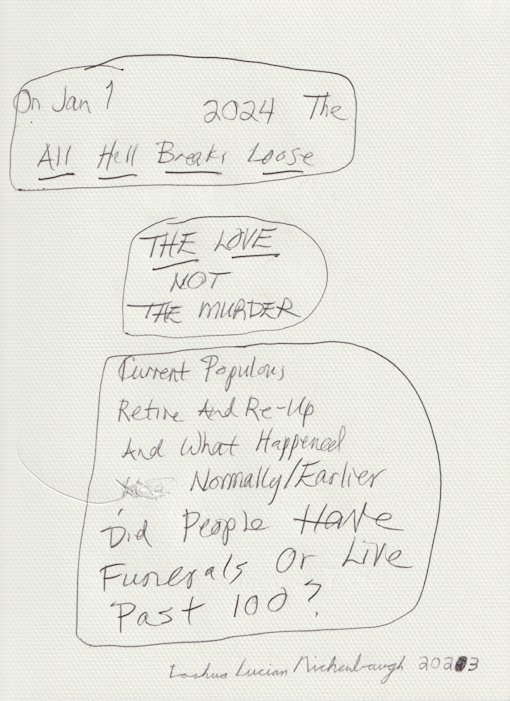 On Jan 1 2024 The
All Hell Breaks Loose
THE LOVE
NOT
THE MURDER
Current Populous
Retire And Re-Up
And What Happened
Normally/Earlier
Did People Have
Funerals Or Live
Past 100?
Joshua Lucian 2023